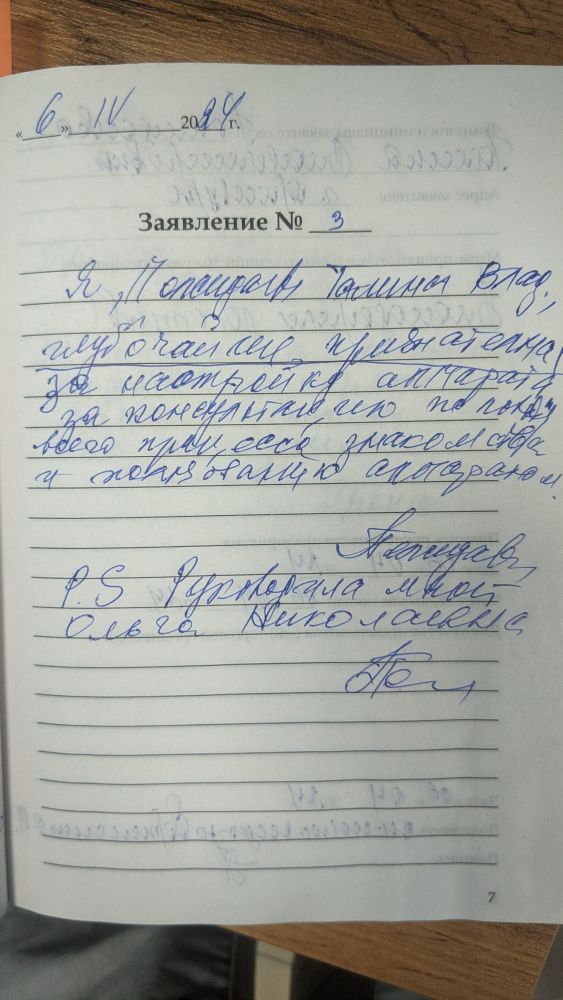 «6» IV 2024 г.
Заявление № 3
Я, Галина Влад.,
глубочайше признательна
за настройку аппарата
за консультацию по
всего процесса знакомства
и пользованию аппаратом.
P.S Руководила мной
Ольга Николаевна
7